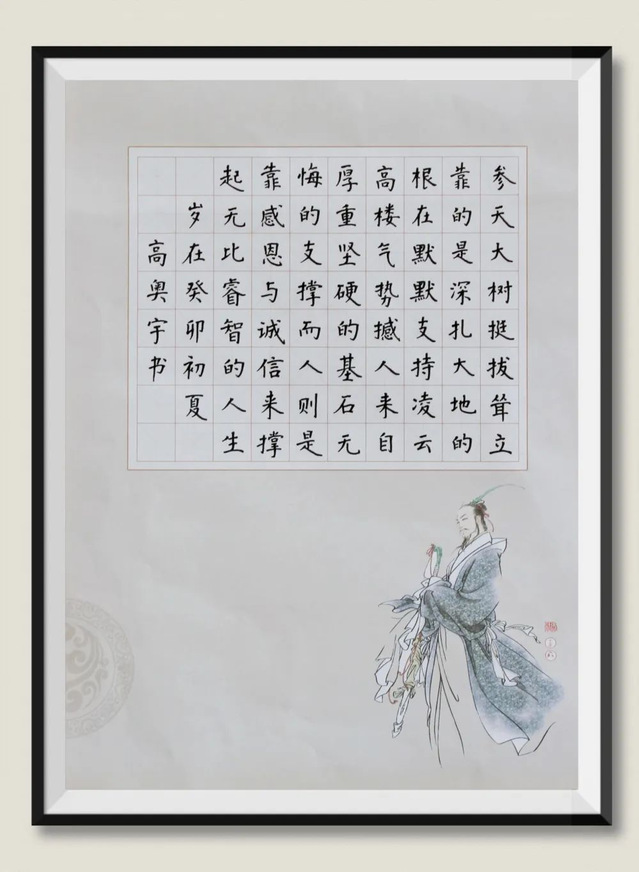 参天大树挺拔耸立
靠的是深扎大地的
根在默默支持凌云
高楼气势撼人来自
厚重坚硬的基石无
悔的支撑而人则是
靠感恩与诚信来撑
起无比睿智的人生
岁在癸卯初夏
高奥宇书